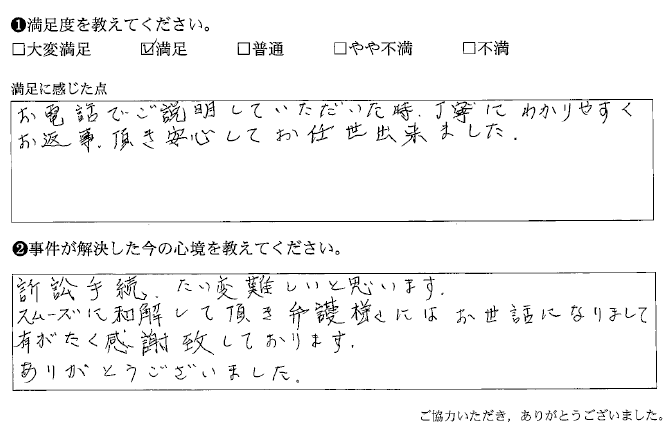 ❶満足度を教えてください。
□大変満足 ☑満足 □普通 □やや不満 □不満
満足に感じた点
お電話でご説明していただいた時、丁寧にわかりやすく
お返事、頂き安心してお任せ出来ました。
❷事件が解決した今の心境を教えてください。
訴訟手続、たい変難しいと思います。
スムーズに和解して頂き弁護様さにはお世話になりまして
有がたく感謝致しております。
ありがとうございました。
ご協力いただき，ありがとうございました。